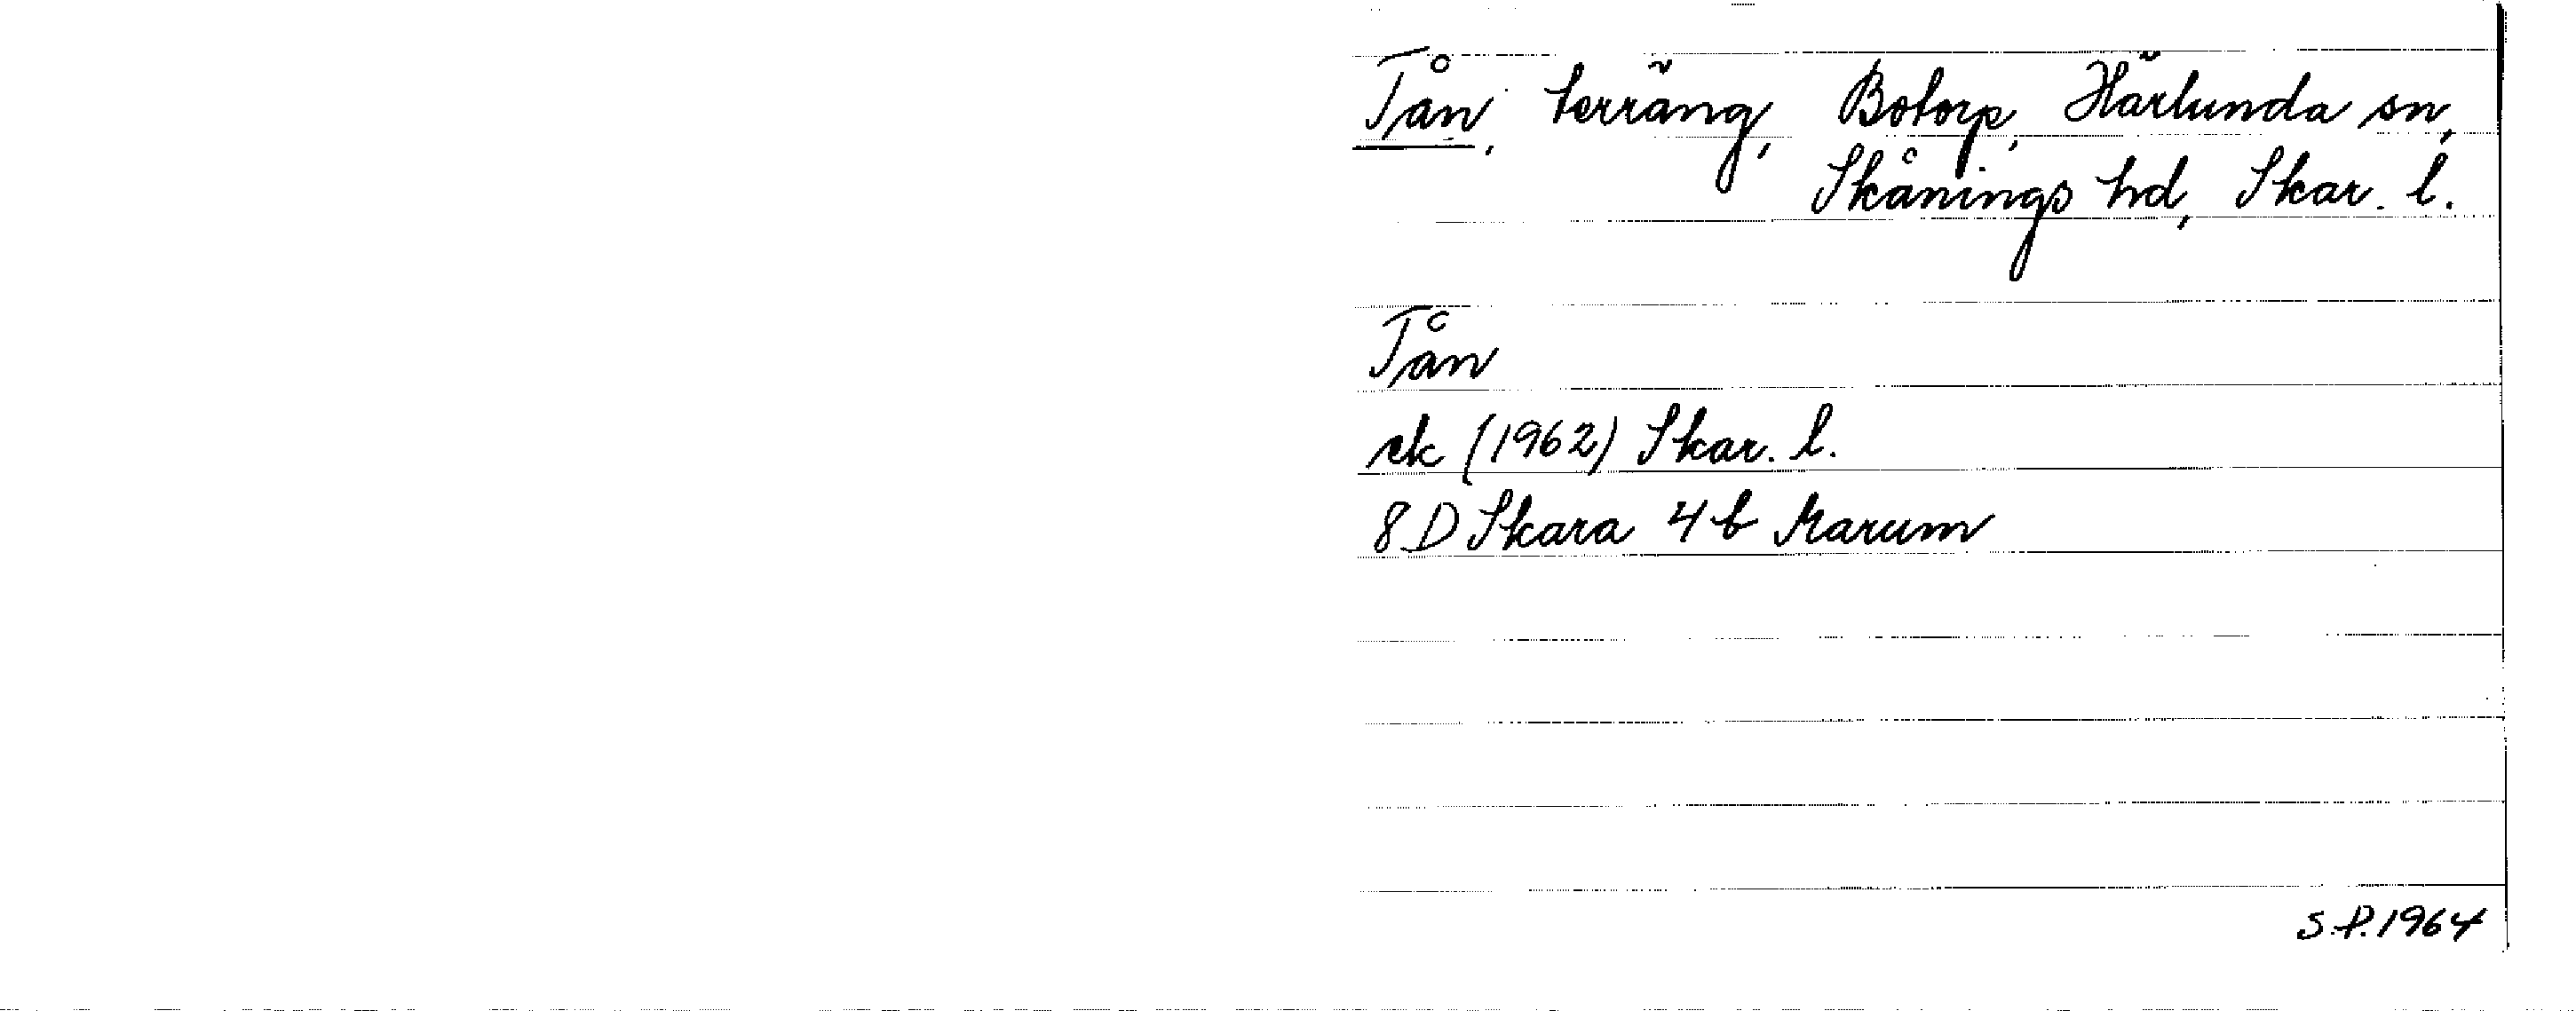 Tån, terräng, Botorp, Härlunda sn,
Skånings hd, Skar. l.
Tån
ek (1962) Skar. l.
8 D Skara 4 b Marum
S.P. 1964